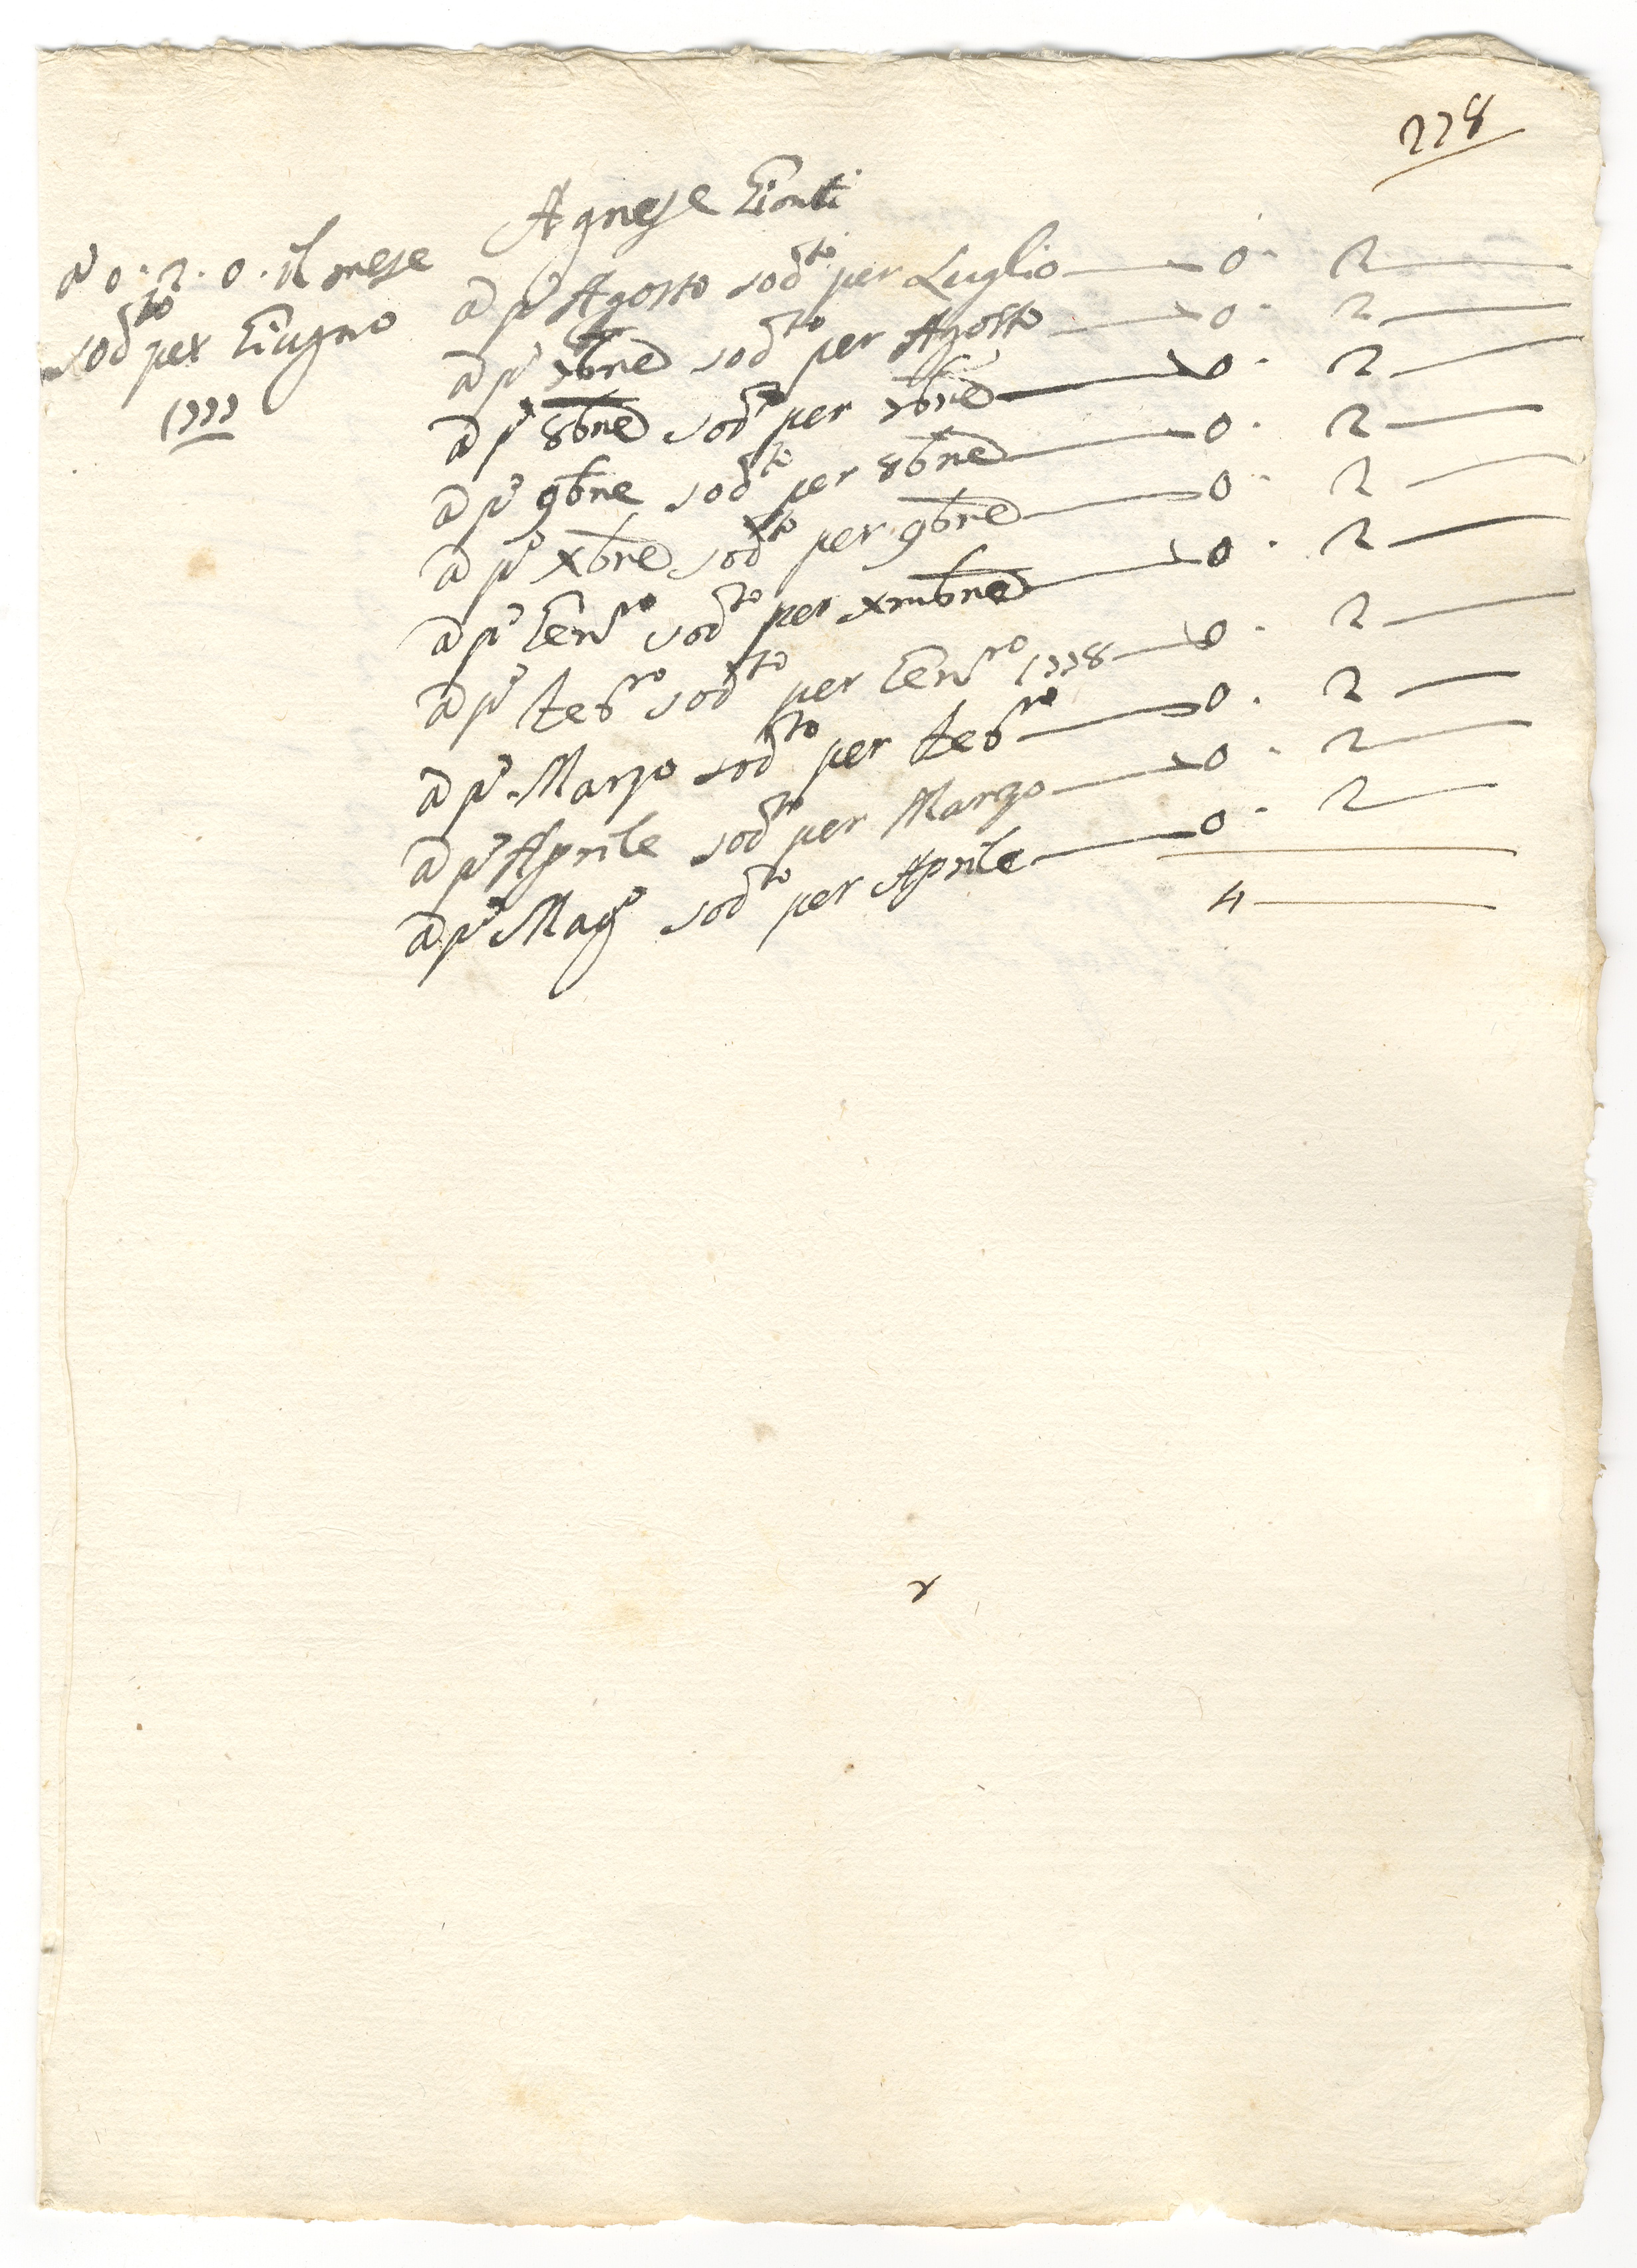 228
Agnese Gionti
à 0 · 2 · 0 · il mese
sod.to per Giugno
1777
a p.o Agosto sod.to per Luglio — 0 · 2 —
a p.o 7bre sod.to per Agosto — 0 · 2 —
a p.o 8bre sod.to per 7bre — 0 · 2 —
a p.o 9bre sod.to per 8bre — 0 · 2 —
a p.o Xbre sod.to per 9bre — 0 · 2 —
a p.o Genn.ro sod.to per Xmbre — 0 · 2 —
a p.o Feb.ro sod.to per Genn.ro 1778 — 0 · 2 —
a p.o Marzo sod.to per Feb.ro — 0 · 2 —
a p.o Aprile sod.to per Marzo — 0 · 2 —
a p.o Mag.o sod.to per Aprile — 0 · 2 —
4 —